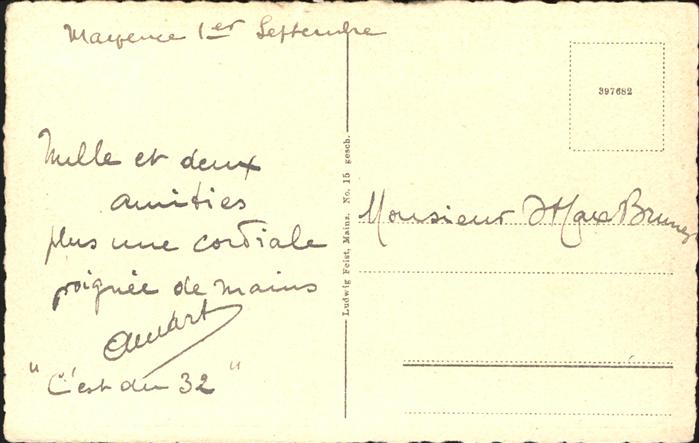 Mayence 1er Septembre
Mille et deux
amitiés
plus une cordiale
poignée de mains
"C'est du 32"
Ludwig Feist, Mainz. No. 15 gesch.
397682
Monsieur Max